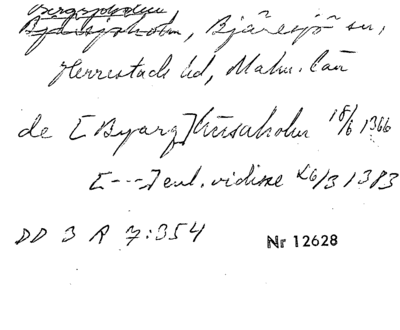 Bjäresjö sn,
Herrestads hd, Malm. län
de [Byarg]krusaholm 18/6 1366
[---] enl. vidisse 26/3 1383
DD 3 R 7:354
Nr 12628